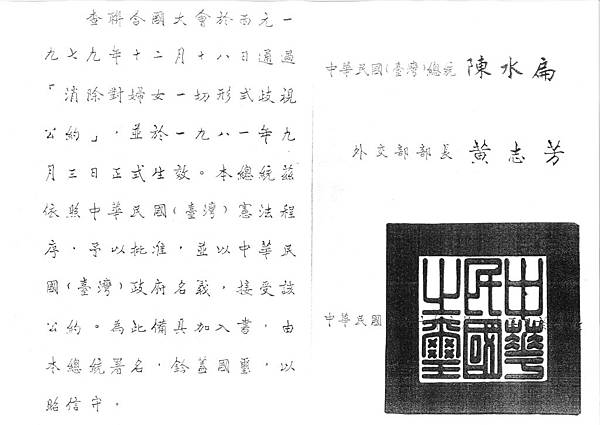 查聯合國大會於西元一
九七九年十二月十八日通過
「消除對婦女一切形式歧視
公約」，並於一九八一年九
月三日正式生效。本總統茲
依照中華民國(臺灣)憲法程
序，予以批准，並以中華民
國(臺灣)政府名義，接受該
公約。為此備具加入書，由
本總統署名，鈐蓋國璽，以
昭信守。
中華民國(臺灣)總統 陳水扁
外交部部長 黃志芳
中華民國
中華民國之璽